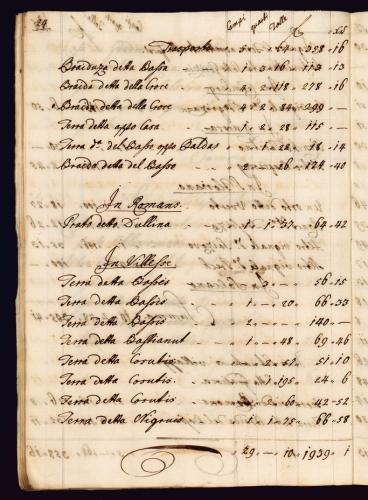 24 Campi quarti Tolle £ Sol
Trasporto 5 " — " 64 " 358 " 16
Braiduza detta Bassa 1 " 3 " 16 " 113 " 13
Braida detta della Croce 4 " 2 " 118 " 278 " 16
Braida detta della Croce 4 " 2 " 84 " 299 " —
Terra detta apso Casa 1 " 2 " 28 " 115 " —
Terra d.ª del Basso apso Baldas " 1 " 22 " 18 " 14
Braida detta del Basso 2 " — " 26 " 124 " 40
In Romans
Prato detto Dullina 1 " 1 " 37 " 64 " 42
In Villesse
Terra detta Bosses 3 " — " 56 " 15
Terra detta Bassis 1 " — " 20 " 66 " 33
Terra detta Bassis 2 " — " — " 140 " —
Terra detta Bastianut 1 " — " 48 " 69 " 46
Terra detta Corubis 2 " 51 " 51 " 10
Terra detta Corubis 1 " 195 " 24 " 6
Terra detta Corubis 2 " 60 " 42 " 52
Terra detta Nigruis 1 " 1 " 75 " 66 " 58
29 " — " 10 " 1939 " 1